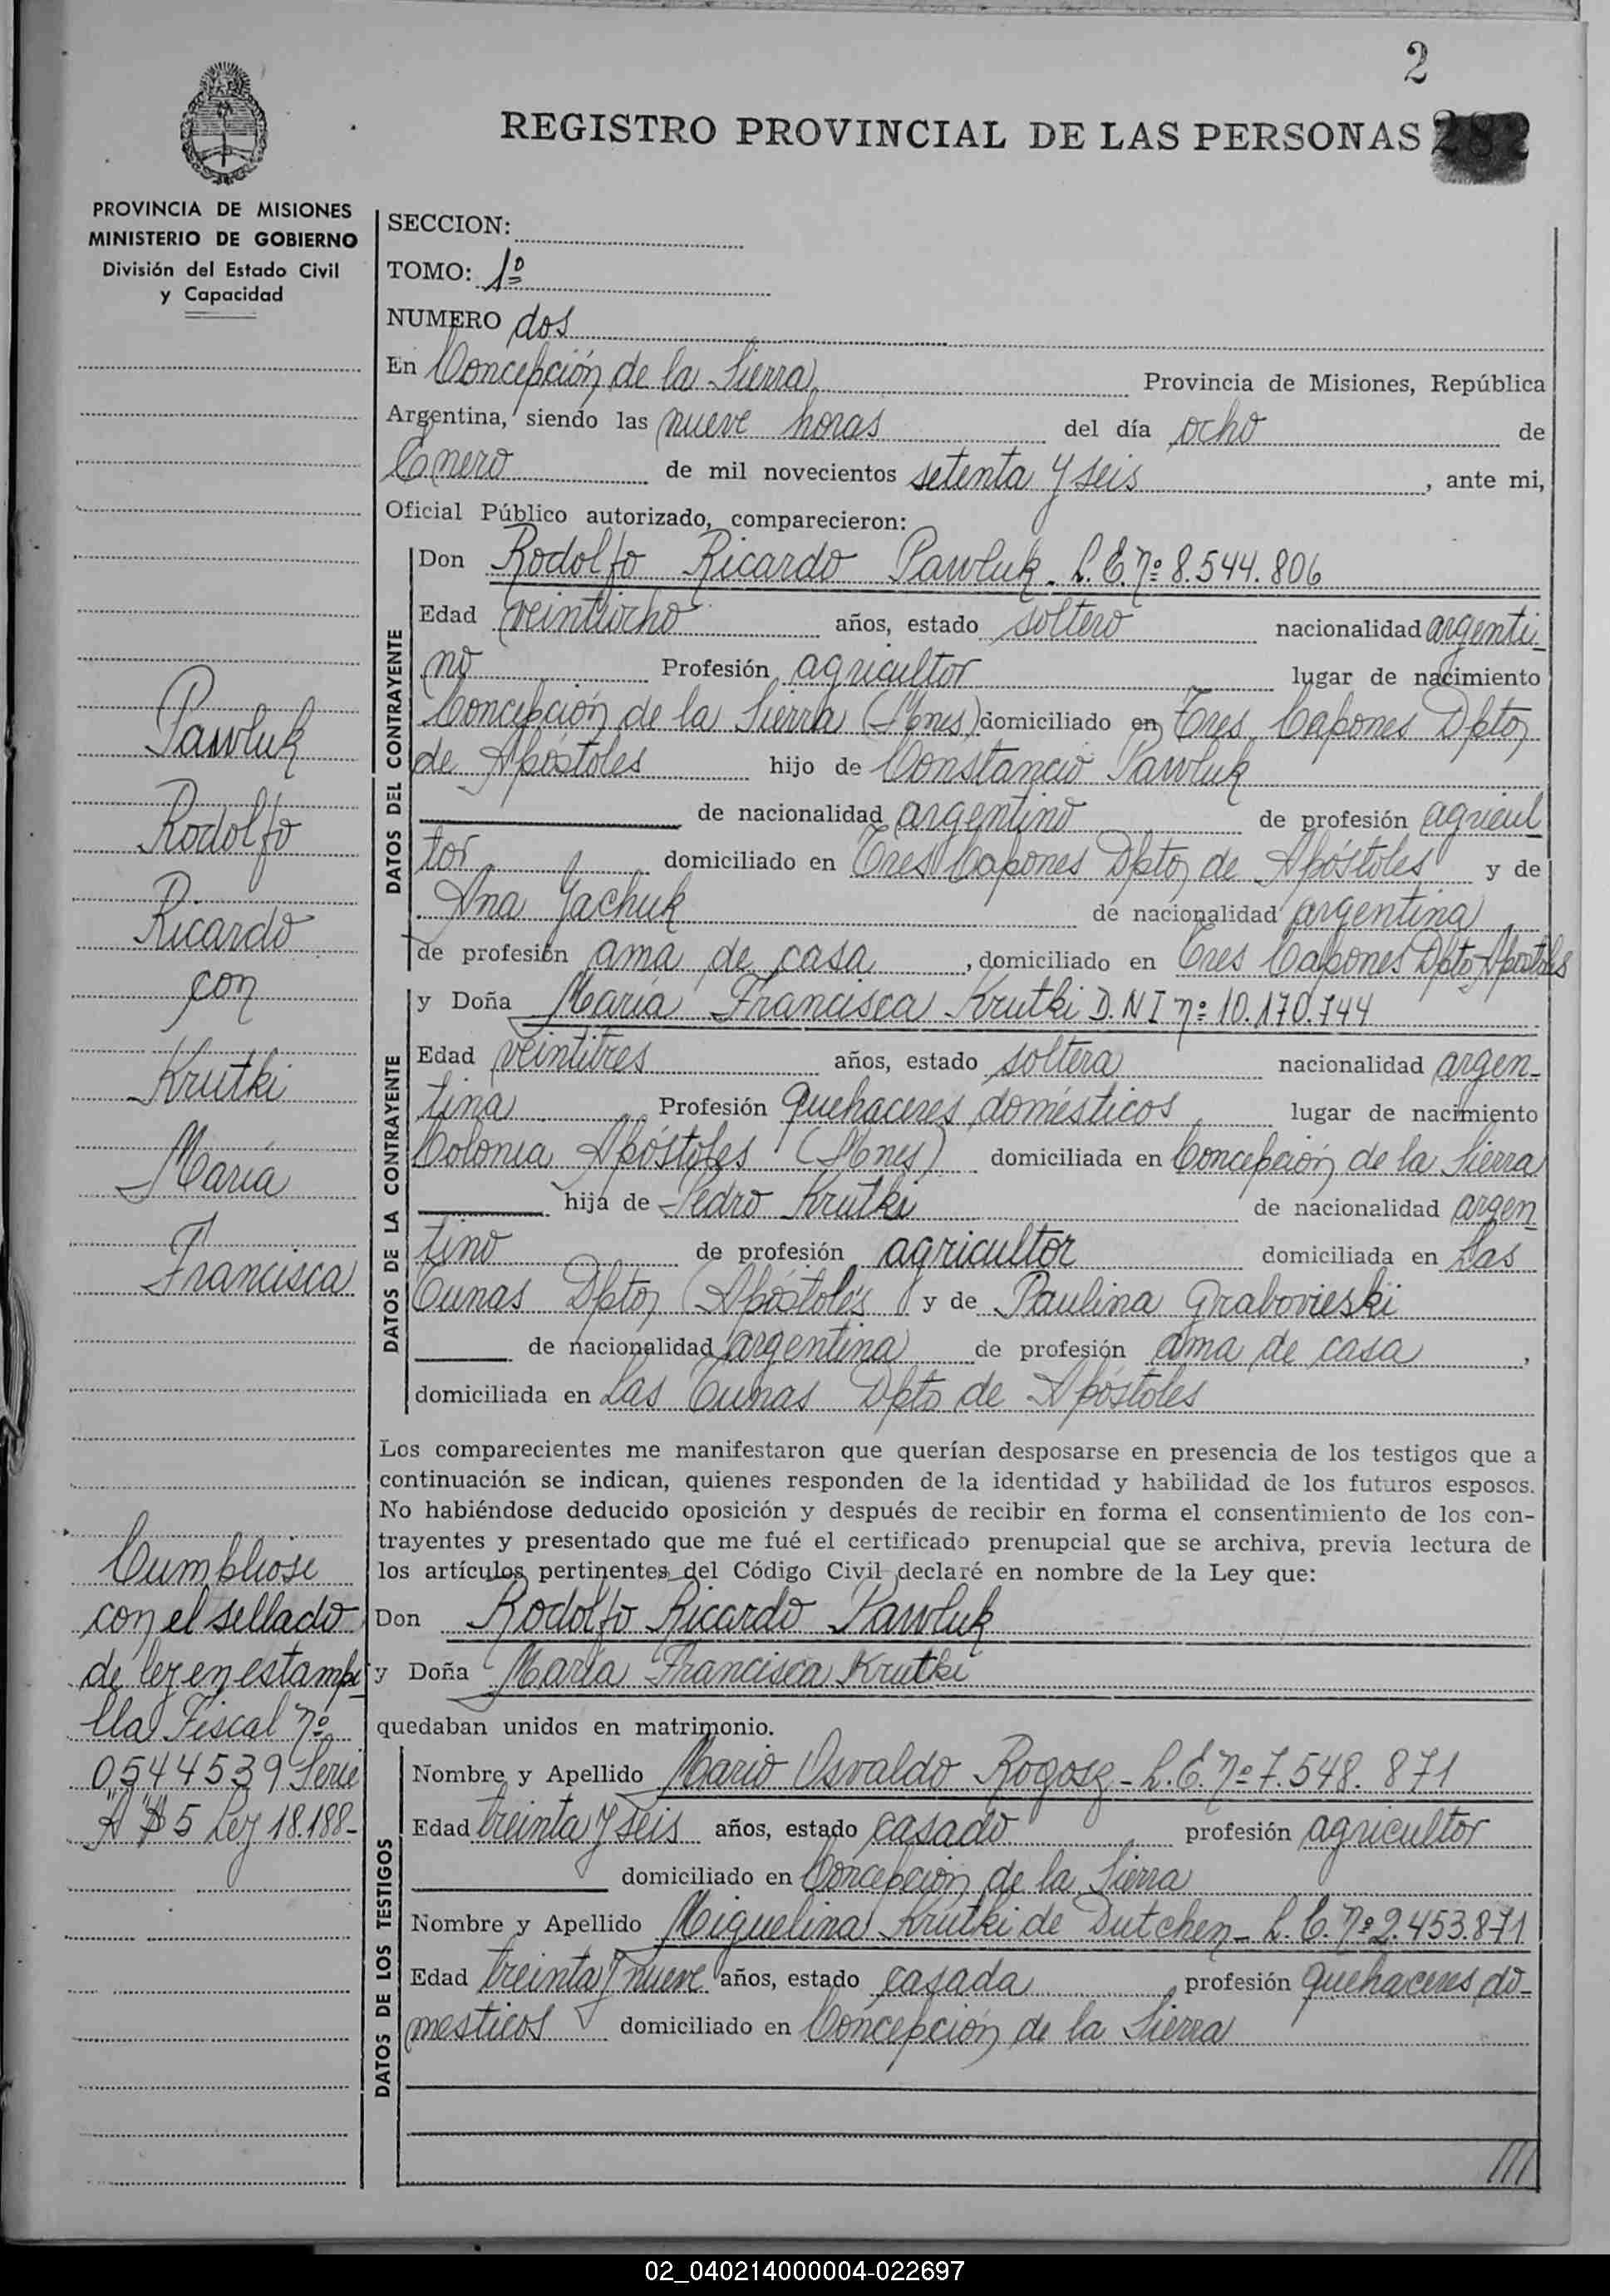 2
REGISTRO PROVINCIAL DE LAS PERSONAS 282
PROVINCIA DE MISIONES
MINISTERIO DE GOBIERNO
División del Estado Civil
y Capacidad
SECCION:
TOMO: 1º
NUMERO dos
En Concepción de la Sierra, Provincia de Misiones, República
Argentina, siendo las nueve horas del día ocho de
Enero de mil novecientos setenta y seis, ante mi,
Oficial Público autorizado, comparecieron:
DATOS DEL CONTRAYENTE
Don Rodolfo Ricardo Pawluk. L.E. nº 8.544.806
Edad veintiocho años, estado soltero nacionalidad argenti-
no Profesión agricultor lugar de nacimiento
Concepción de la Sierra (Mnes) domiciliado en Tres Capones Dpto
de Apóstoles hijo de Constancio Pawluk
de nacionalidad argentino de profesión agricul
tor domiciliado en Tres Capones Dpto de Apóstoles y de
Ana Yachuk de nacionalidad argentina
de profesión ama de casa, domiciliado en Tres Capones Dpto Apóstoles
DATOS DE LA CONTRAYENTE
y Doña María Francisca Krutki D.N I nº 10.170.744
Edad veintitres años, estado soltera nacionalidad argen-
tina Profesión quehaceres domésticos lugar de nacimiento
Colonia Apóstoles (Mnes) domiciliada en Concepción de la Sierra
hija de Pedro Krutki de nacionalidad argen
tino de profesión agricultor domiciliada en Las
Tunas Dpto Apóstoles y de Paulina Grabovieski
de nacionalidad argentina de profesión ama de casa,
domiciliada en Las Tunas Dpto de Apóstoles
Los comparecientes me manifestaron que querían desposarse en presencia de los testigos que a
continuación se indican, quienes responden de la identidad y habilidad de los futuros esposos.
No habiéndose deducido oposición y después de recibir en forma el consentimiento de los con-
trayentes y presentado que me fué el certificado prenupcial que se archiva, previa lectura de
los artículos pertinentes del Código Civil declaré en nombre de la Ley que:
Don Rodolfo Ricardo Pawluk
y Doña María Francisca Krutki
quedaban unidos en matrimonio.
DATOS DE LOS TESTIGOS
Nombre y Apellido Mario Osvaldo Rogosz - L.E. nº 7.548.871
Edad treinta y seis años, estado casado profesión agricultor
domiciliado en Concepción de la Sierra
Nombre y Apellido Miguelina Krutki de Dutchen - L.C. nº 2.453.871
Edad treinta y nueve años, estado casada profesión quehaceres do-
mesticos domiciliado en Concepción de la Sierra
///
Pawluk
Rodolfo
Ricardo
con
Krutki
María
Francisca
Cumpliose
con el sellado
de ley en estampi
lla Fiscal nº
0544539 Serie
"A" $5 Ley 18.188-
02_040214000004-022697